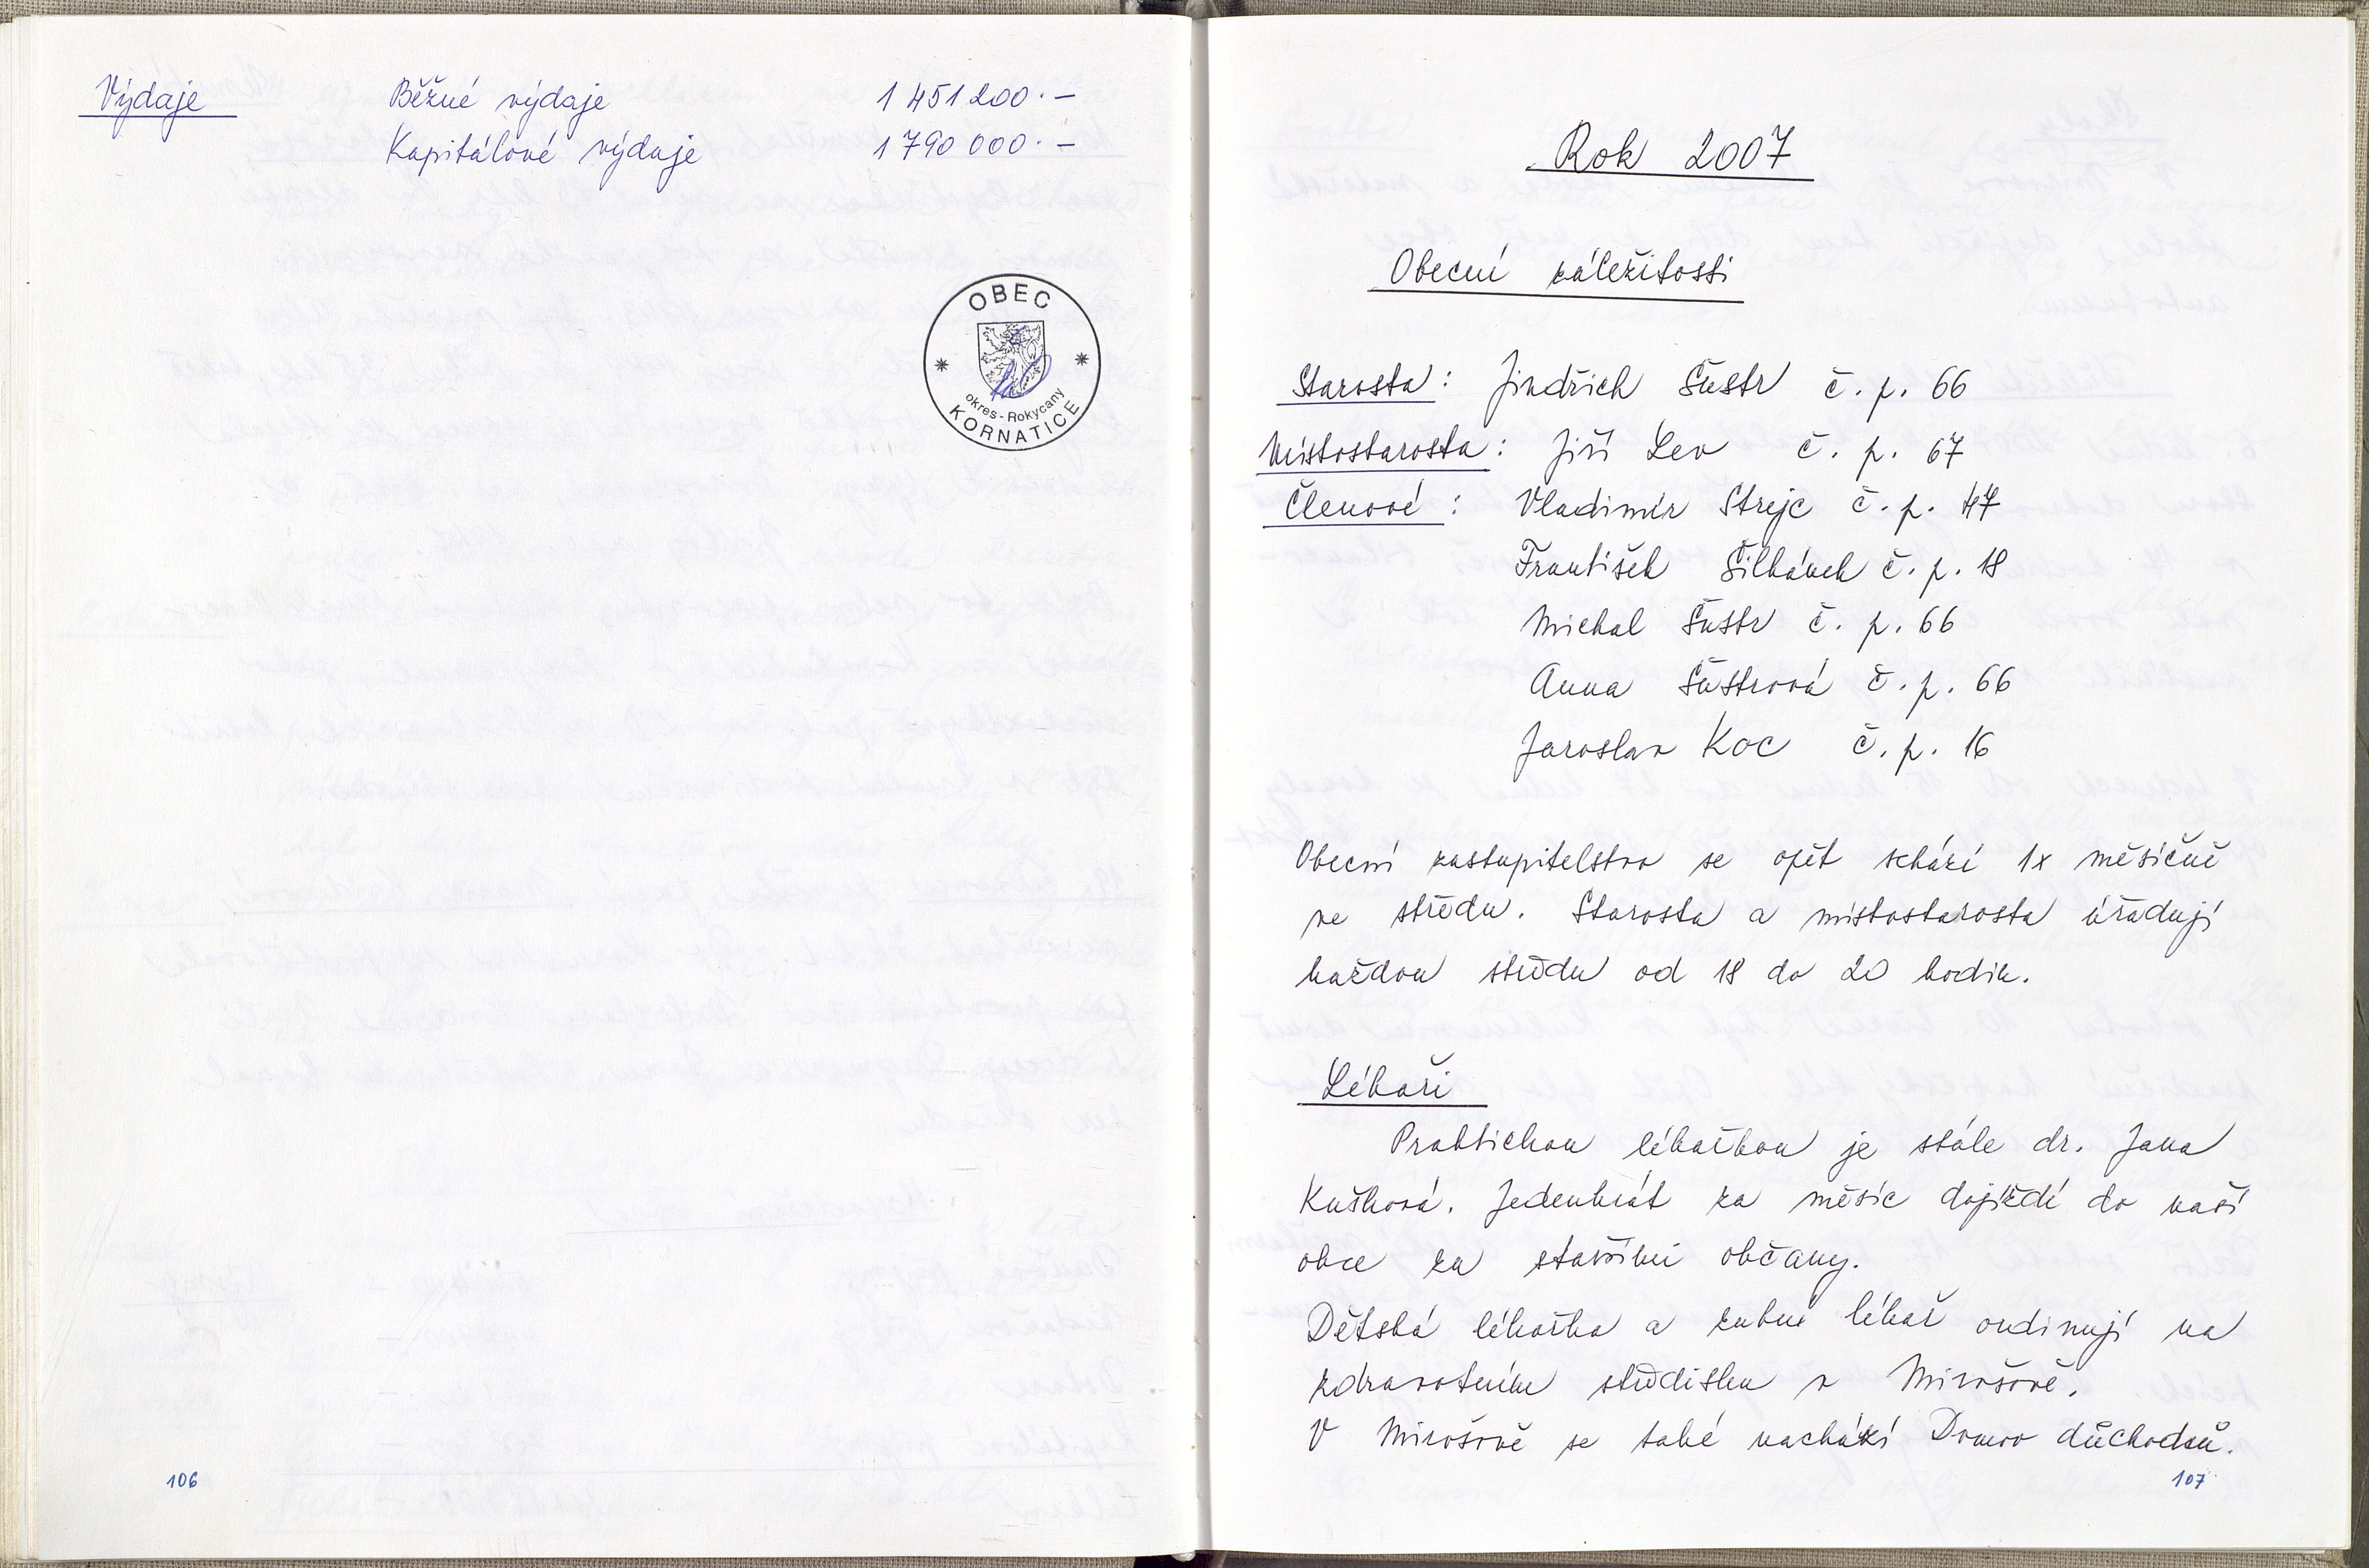 Výdaje Běžné výdaje 1 451 200.–
Kapitálové výdaje 1 790 000.–
OBEC
okres - Rokycany
KORNATICE
106
Rok 2007
Obecní záležitosti
Starosta: Jindřich Šustr č. p. 66
Místostarosta: Jiří Lev č. p. 67
Členové: Vladimír Strejc č. p. 47
František Šilhánek č. p. 18
Michal Šustr č. p. 66
Anna Šustrová č. p. 66
Jaroslav Koc č. p. 16
Obecní zastupitelstvo se opět schází 1x měsíčně
ve středu. Starosta a místostarosta úřadují
každou středu od 18 do 20 hodin.
Lékaři
Praktickou lékařkou je stále dr. Jana
Kušková. Jedenkrát za měsíc dojíždí do naší
obce za staršími občany.
Dětská lékařka a zubní lékař ordinují na
zdravotním středisku v Mirošově.
V Mirošově se také nachází Domov důchodců.
107